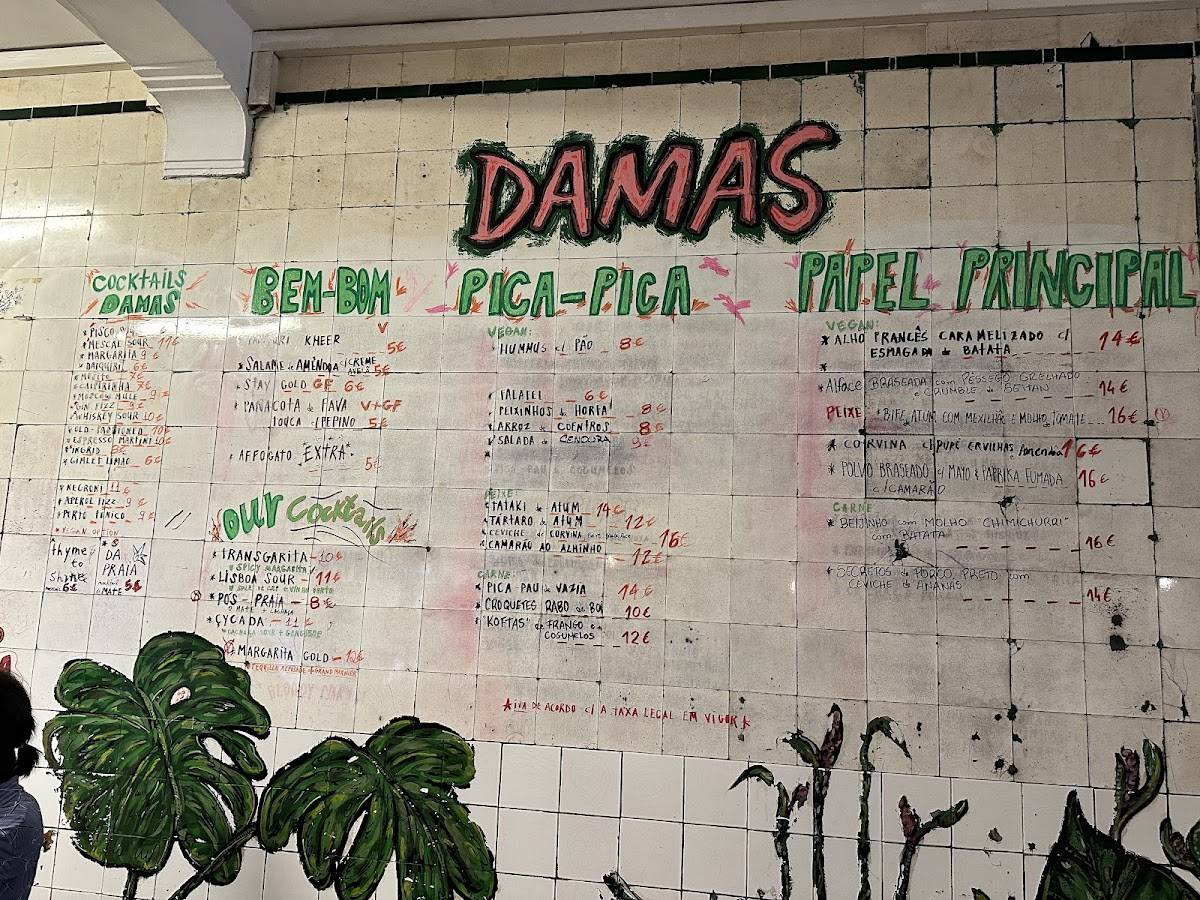 DAMAS
COCKTAILS
DAMAS
*PISCO
*MESCAL SOUR 11€
*MARGARITA 9€
*DAIQUIRI
*CAIPIRINHA 7€
*MOSCOW MULE 9€
*GIN FIZZ 9€
*WHISKEY SOUR 10€
*OLD-FASHIONED 10€
*ESPRESSO MARTINI 10€
*INGRID 8€
*GIMLET LIMÃO 6€
*NEGRONI 11€
*APEROL FIZZ 9€
*PORTO TÓNICO 9€
*VEGAN OPTION
thyme
to
Shine
6€
DA
PRAIA
MATE 5€
BEM-BOM
V
KHEER 5€
*SALAME de AMÊNDOA C/CREME
AVELÃ 5€
*STAY GOLD GF 6€
*PANACOTA de FAVA V+GF
TOUCA C/PEPINO 5€
*AFFOGATO *EXTRA* 5€
OUR Cocktails
*TRANSGARITA - 10€
SPICY MARGARITA
*LISBOA SOUR - 11€
*PÓS-PRAIA - 8€
*ÇYCADA - 11€
CACHACA SOUR + GENGIBRE
*MARGARITA GOLD - 12€
*TEQUILLA REPOSADO & GRAND MARNIER
BLOODY MARY
PICA-PICA
VEGAN:
*HUMMUS c/ PÃO 8€
*FALAFEL 6€
*PEIXINHOS da HORTA 8€
*ARROZ de COENTROS 8€
*SALADA de CENOURA 9€
*
PEIXE:
*TATAKI de ATUM 14€
*TÁRTARO de ATUM 12€
*CEVICHE de CORVINA 16€
*CAMARÃO AO ALHINHO 12€
CARNE:
*PICA PAU da VAZIA 14€
*CROQUETES RABO de BOI 10€
*"KOFTAS" de FRANGO e
COGUMELOS 12€
*IVA DE ACORDO C/ A TAXA LEGAL EM VIGOR*
PAPEL PRINCIPAL
VEGAN:
*ALHO FRANCÊS CARAMELIZADO c/
ESMAGADA de BATATA 14€
*
*Alface BRASEADA com PÊSSEGO GRELHADO
e CRUMBLE de SEITAN 14€
PEIXE *BIFE ATUM COM MEXILHÃO e MOLHO TOMATE 16€
*CORVINA c/PURÉ ERVILHAS/menta 16€
*POLVO BRASEADO c/ MAYO de PAPRIKA FUMADA
c/CAMARÃO 16€
CARNE
*BEIJINHO com MOLHO "CHIMICHURRI"
com BATATA 16€
*SECRETOS de PORCO PRETO com
CEVICHE de ANANÁS 14€